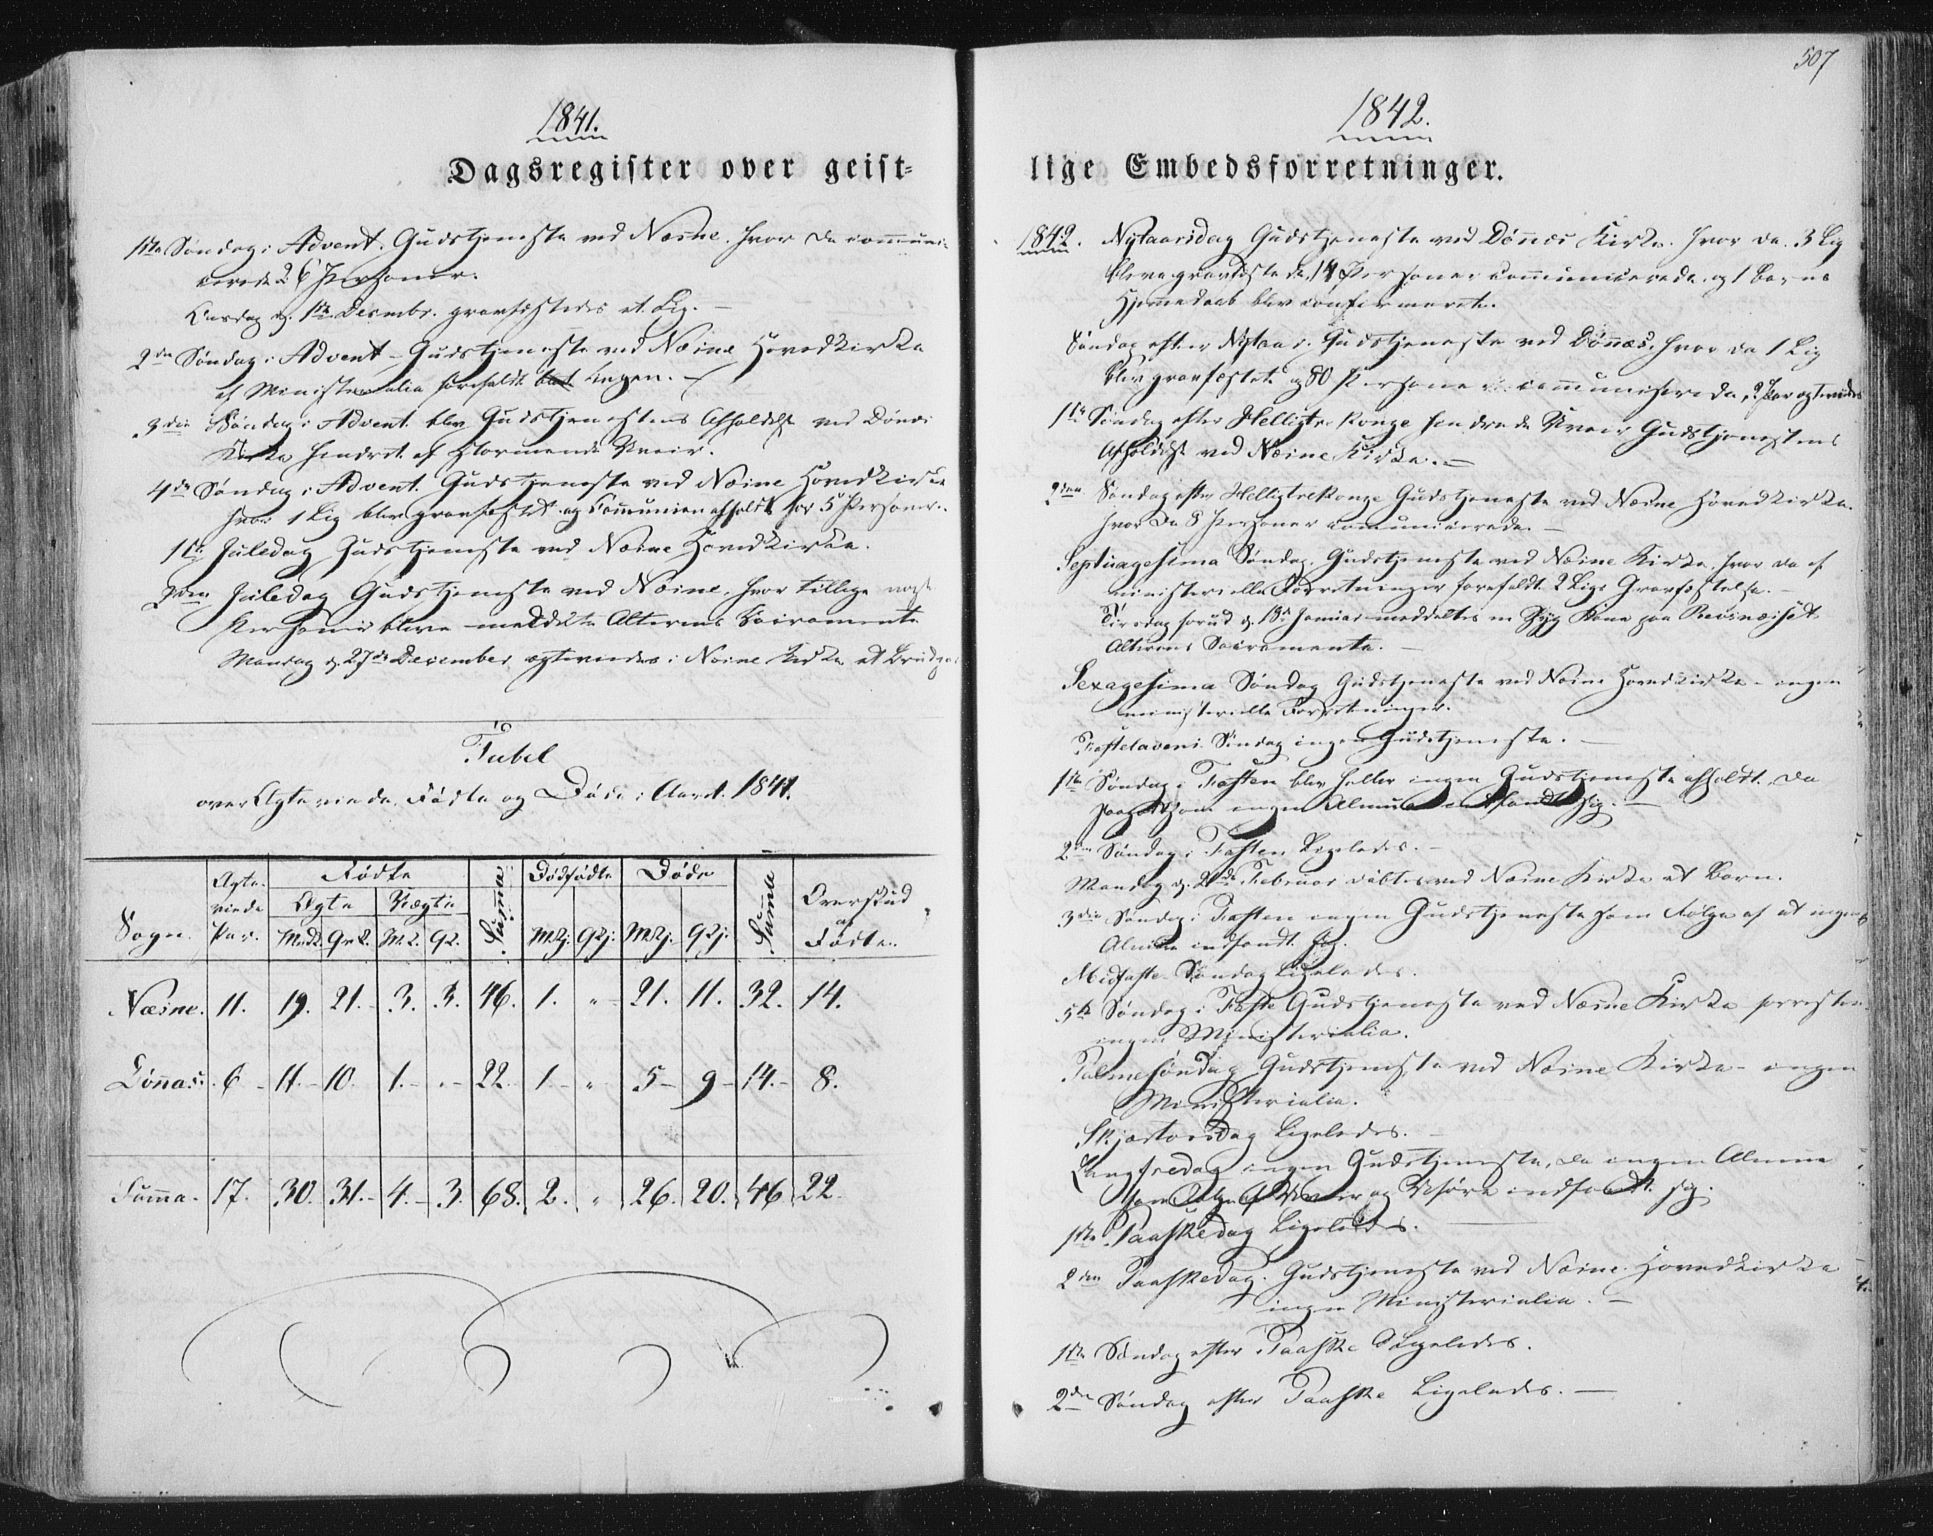 1841.
Dagsregister over geist=
1ste Søndag i Advent. Gudstjeneste ved Næsne, hvor da communi-
cerede 26 Personer.
d. 1ste Decembr. gravfæstedes et Lig. –
2den Søndag i Advent – Gudstjeneste ved Næsne Hovedkirke
af Ministerialia forefaldt Ingen. –
3die Søndag i Advent blev Gudstjenestens Afholdelse ved Dønæs
Kirke hindret af stormende Veir.
4de Søndag i Advent. Gudstjeneste ved Næsne Hovedkirke
hvor 1 Lig blev gravfæstet og Communion afholdt for 5 Personer.
1ste Juledag Gudstjeneste ved Næsne Hovedkirke.
2den Juledag Gudstjeneste ved Næsne, hvor tillige
Personer bleve meddelte Alterens Sacramente
Mandag d. 27de December, ægteviedes i Næsne Kirke et Brudepar
Tabel
over Ægteviede, Fødte og Døde i Aaret 1841.
Sogn. Ægte-viede Par. Fødte Ægte Uægte Summa Dødfødte Døde Summa Overskud af Fødte.
Næsne. 11. 19. 21. 3. 3. 46. 1. " 21. 11. 32. 14.
Dønæs. 6 11. 10. 1. – 22. 1. " 5 9 14. 8.
Summa. 17. 30. 31. 4. 3. 68. 2. " 26. 20. 46 22.
507
1842.
lige Embedsforretninger.
1842. Nytaarsdag Gudstjeneste ved Dønnes Kirke. hvor da 3 Lig
bleve gravfæstede, 14 Personer communicerede, og 1 Barns
Hjemmedaab blev confirmeret.
Søndag efter Nytaar, Gudstjeneste ved Dønnæs, hvor da 1 Lig
blev gravfæstet og 80 Personer communicerede, 2 Par ægteviedes
1ste Søndag efter Helligtre Konge hindrede Veir Gudstjenestens
Afholdelse ved Næsne Kirke. –
2den Søndag efter Helligtrekonge Gudstjeneste ved Næsne Hovedkirke.
hvor da 8 Personer communicerede. –
Septuagesima Søndag. Gudstjeneste ved Næsne Kirke, hvor da af
ministerielle Forretninger forefaldt 2 Ligs Gravfæstelse. –
Tirsdag forud d. 18de Januar meddeltes en syg Kone paa
Alterens Sacramente. –
Sexagesima Søndag Gudstjeneste ved Næsne Hovedkirke – ingen
ministerielle Forretninger.
Fastelavens Søndag ingen Gudstjeneste. –
1ste Søndag i Fasten blev heller ingen Gudstjeneste afholdt, da
ingen Almue indfandt sig. –
2den Søndag i Fasten Ligeledes. –
Mandag d. Februar døbtes ved Næsne Kirke et Barn.
3die Søndag i Fasten ingen Gudstjeneste som Følge af at ingen
Almue indfandt sig.
Midfaste Søndag Ligeledes.
5te Søndag i Faste Gudstjeneste ved Næsne Kirke forresten
ingen Ministerialia.
Palmesøndag Gudstjeneste ved Næsne Kirke – ingen
Ministerialia.
Skjærtorsdag Ligeledes. –
Langfredag ingen Gudstjeneste, da ingen Almue
som Følge af Veir og Uføre indfandt sig.
1ste Paaskedag Ligeledes. –
2den Paaskedag. Gudstjeneste ved Næsne Hovedkirke
ingen Ministerialia. –
1ste Søndag efter Paaske Ligeledes.
2den Søndag efter Paaske Ligeledes. –